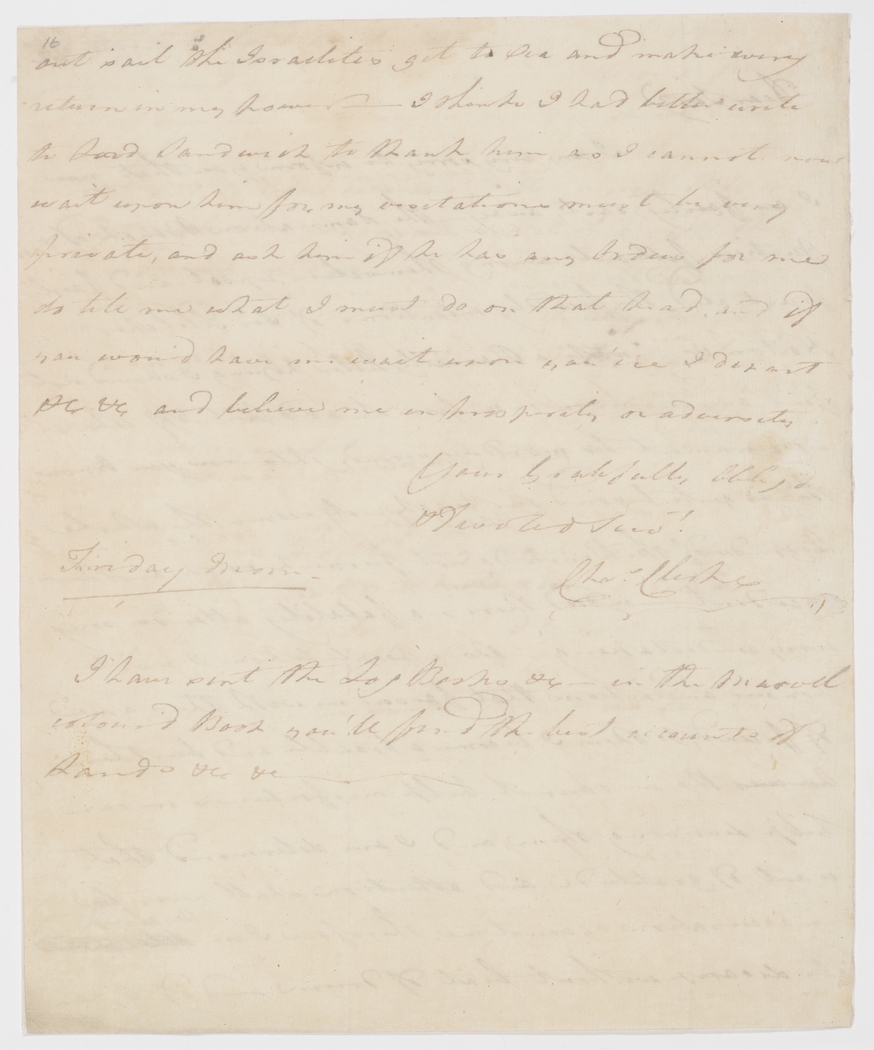 16
out sail the Israelites get to Sea and make every
return in my power — I think I had better write
to Lord Sandwich to thank him as I cannot now
wait upon him for my visitations must be very
private, and ask him if he has any Orders for me
do tell me what I must do on that head, and if
you wou'd have me wait upon you 'ere I depart
&c &c and believe me in prosperity or adversity
Your Gratefully Oblig'd
& Devoted Serv.t
Chas. Clerke
Friday Morn.
I have sent the Log Books &c — in the Marvell
colour'd Book you'll find the best accounts of
Lands &c &c